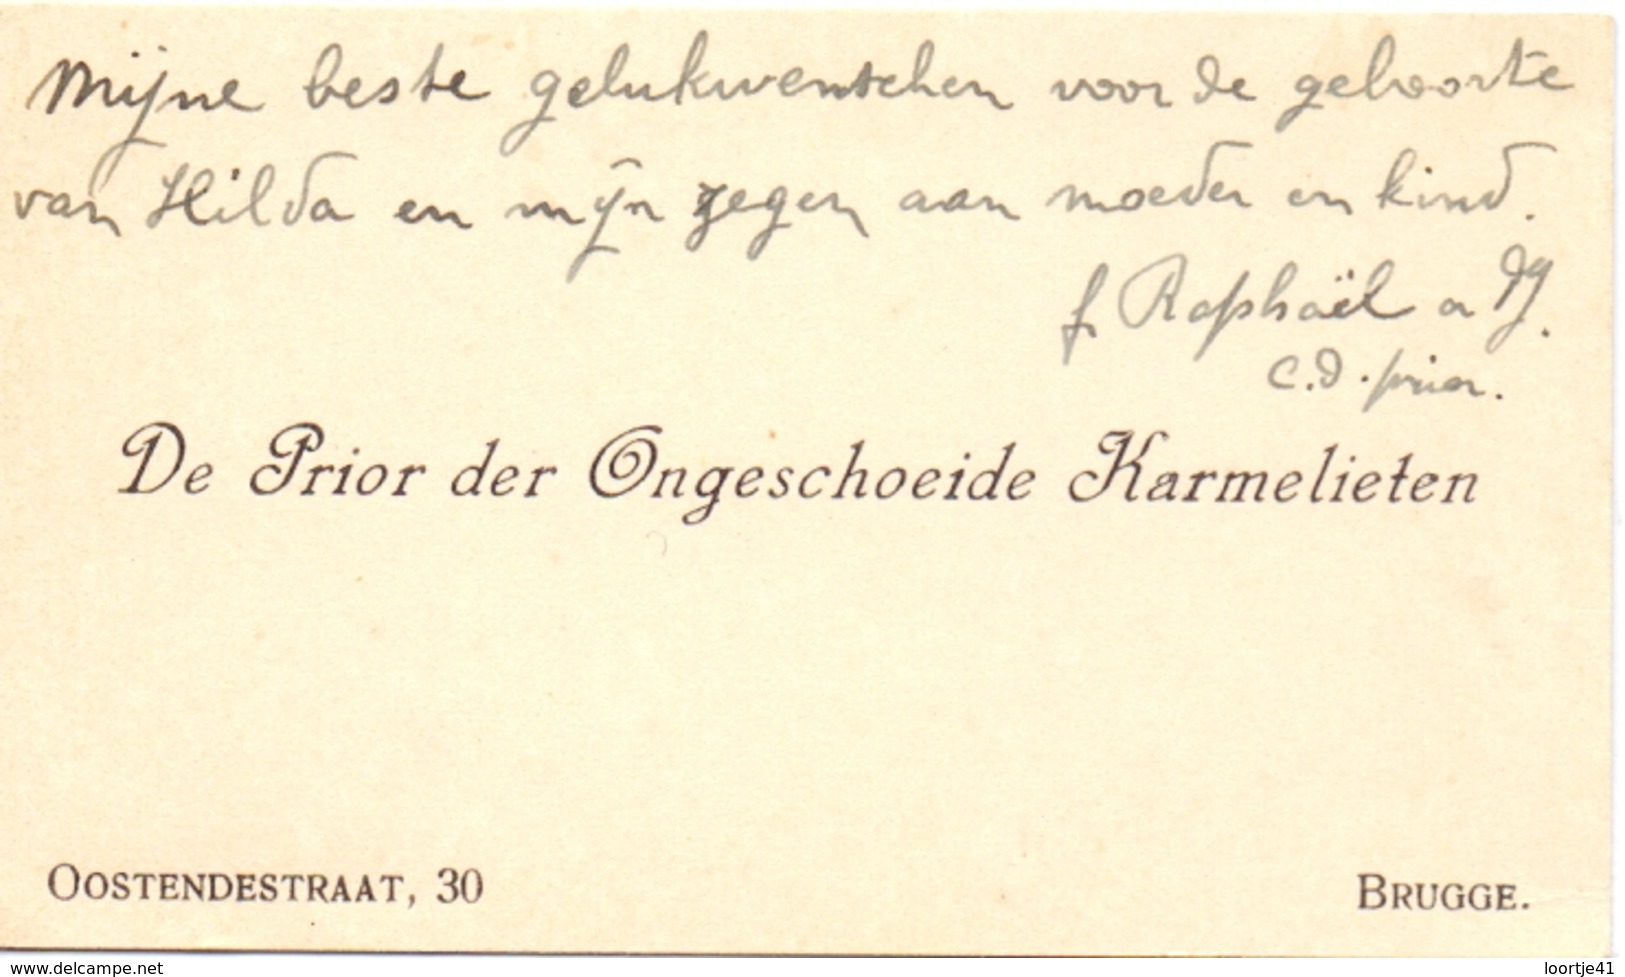 Mijne beste gelukwenschen voor de geboorte
van Hilda en mijn zegen aan moeder en kind.
f. Raphaël a
c.d. prior.
De Prior der Ongeschoeide Karmelieten
OOSTENDESTRAAT, 30
BRUGGE.
www.delcampe.net
loortje41